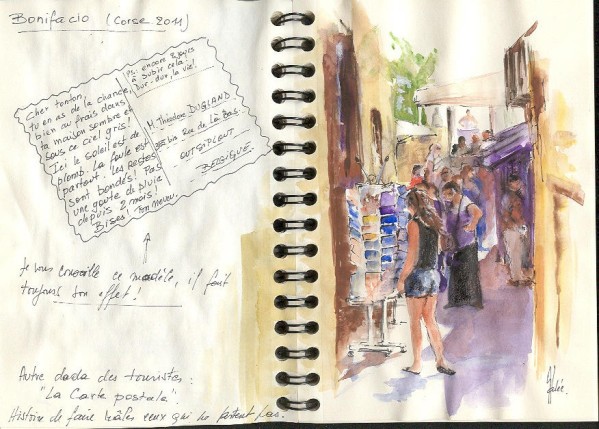 Bonifacio (Corse 2011)
Cher tonton,
tu en as de la chance,
bien au frais dans
ta maison sombre et
sous ce ciel gris!
Ici le soleil est de
plomb. La foule est
partout. Les restos
sont bondés! Pas
une goute de pluie
depuis 2 mois!
Bises! Ton neveu.
PS: encore 2 jours
à subir cela!
Dur-dur, la vie!
M. Theodore DUGLAND
Bis Rue de Là Bas
OUTSIPLOUT
BELGIQUE
Je vous conseille ce modèle, il fait
toujours son effet!
Autre dada des touristes:
"La Carte postale".
Histoire de faire râler ceux qui ne partent pas.